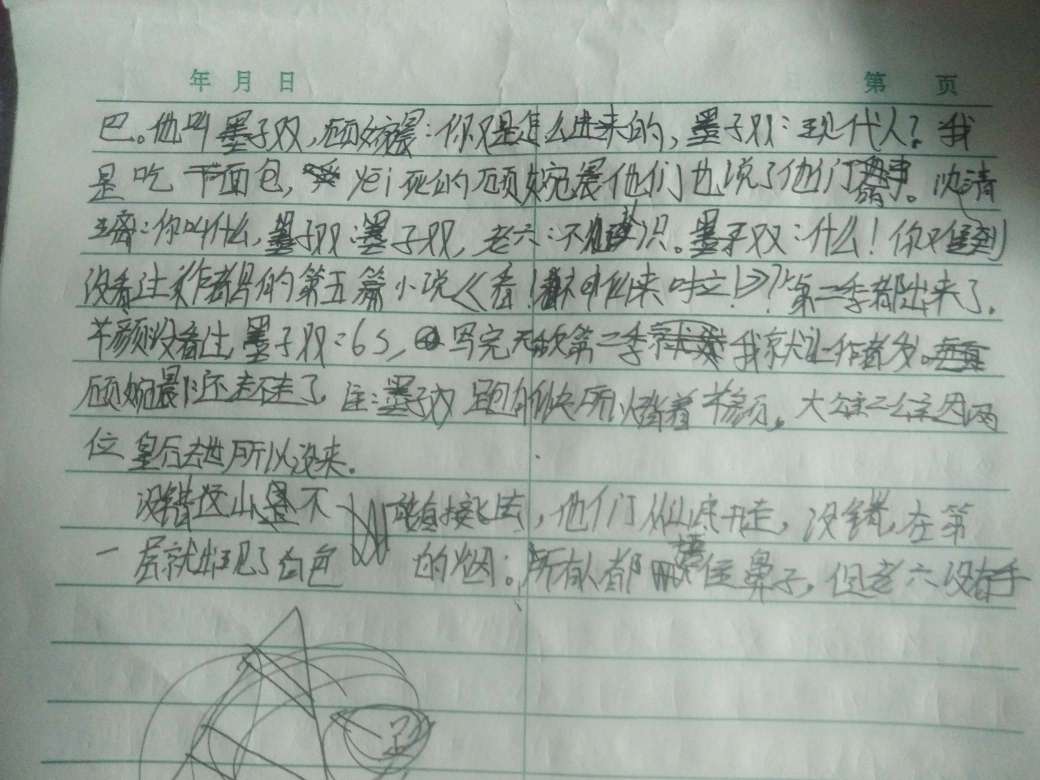 年 月 日 第 页
巴。他叫墨子双，顾婉晨：你又是怎么进来的，墨子双：现代人？我
是吃干面包，死的顾婉晨他们也说了他们。沈清
：你叫什么，墨子双：墨子双，老六：不认识。墨子双：什么！你难到
没看过作者的第五篇小说《香！》？第二季都出来了。
羊颜没看过，墨子双：6 5，写完第二季我就让作者多。
顾婉晨：还走不走了，注：墨子双跑的快所以背着羊颜。大公主二公主因两
位皇后去世所以没来。
没错这山是不能直接飞去，他们从山底开走，没错，在第
一层就出现了白色的烟。所有人都捂住鼻子，但老六没有手